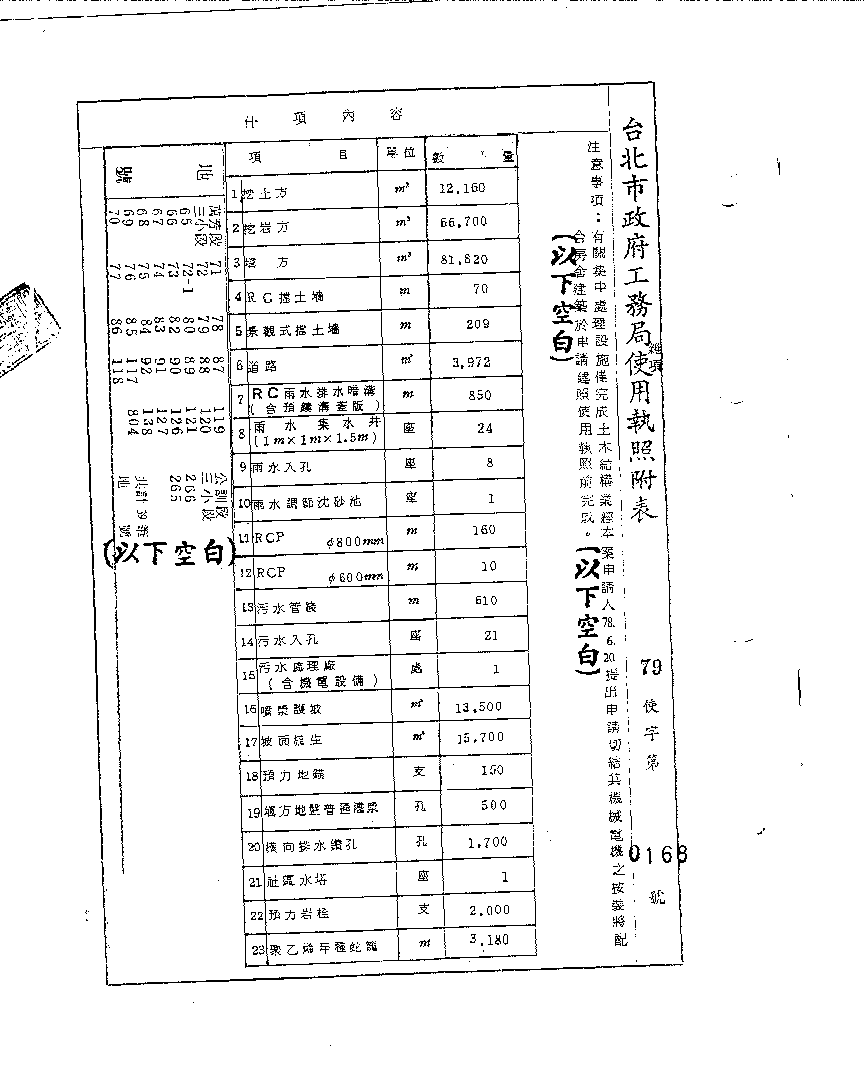 台北市政府工務局使用執照附表
雜項
79
使字第
0168
號
注意事項：有關集中處理設施僅完成土木結構業經本案申請人78.6.20.提出申請切結其機械電機之按裝將配
合房舍建築於申請建照使用執照前完成。(以下空白)
(以下空白)
什項內容
項 目 單位 數 量
1 挖土方 m³ 12,160
2 挖岩方 m³ 66,700
3 填方 m³ 81,820
4 RC擋土墻 m 70
5 景觀式擋土墻 m 209
6 道路 m² 3,972
7 RC雨水排水暗溝 m 850
(含預鑄溝蓋版)
8 雨水集水井 座 24
(1m×1m×1.5m)
9 雨水人孔 座 8
10 雨水調節沈砂池 座 1
11 RCP φ800mm m 160
12 RCP φ600mm m 10
13 污水管線 m 610
14 污水人孔 座 21
15 污水處理廠 處 1
(含機電設備)
16 噴漿護坡 m² 13,500
17 坡面植生 m² 15,700
18 預力地錨 支 150
19 填方地盤普通灌漿 孔 500
20 橫向排水鑽孔 孔 1,700
21 社區水塔 座 1
22 預力岩栓 支 2,000
23 m 3,180
地號
萬芳段 71 78 87 119 公訓段
三小段 72 79 88 120 三小段
65 72-1 80 89 121 266
66 73 82 90 126 265
67 74 83 91 127
68 75 84 92 138 共計39筆
69 76 85 117 804 地號
70 77 86 118
(以下空白)